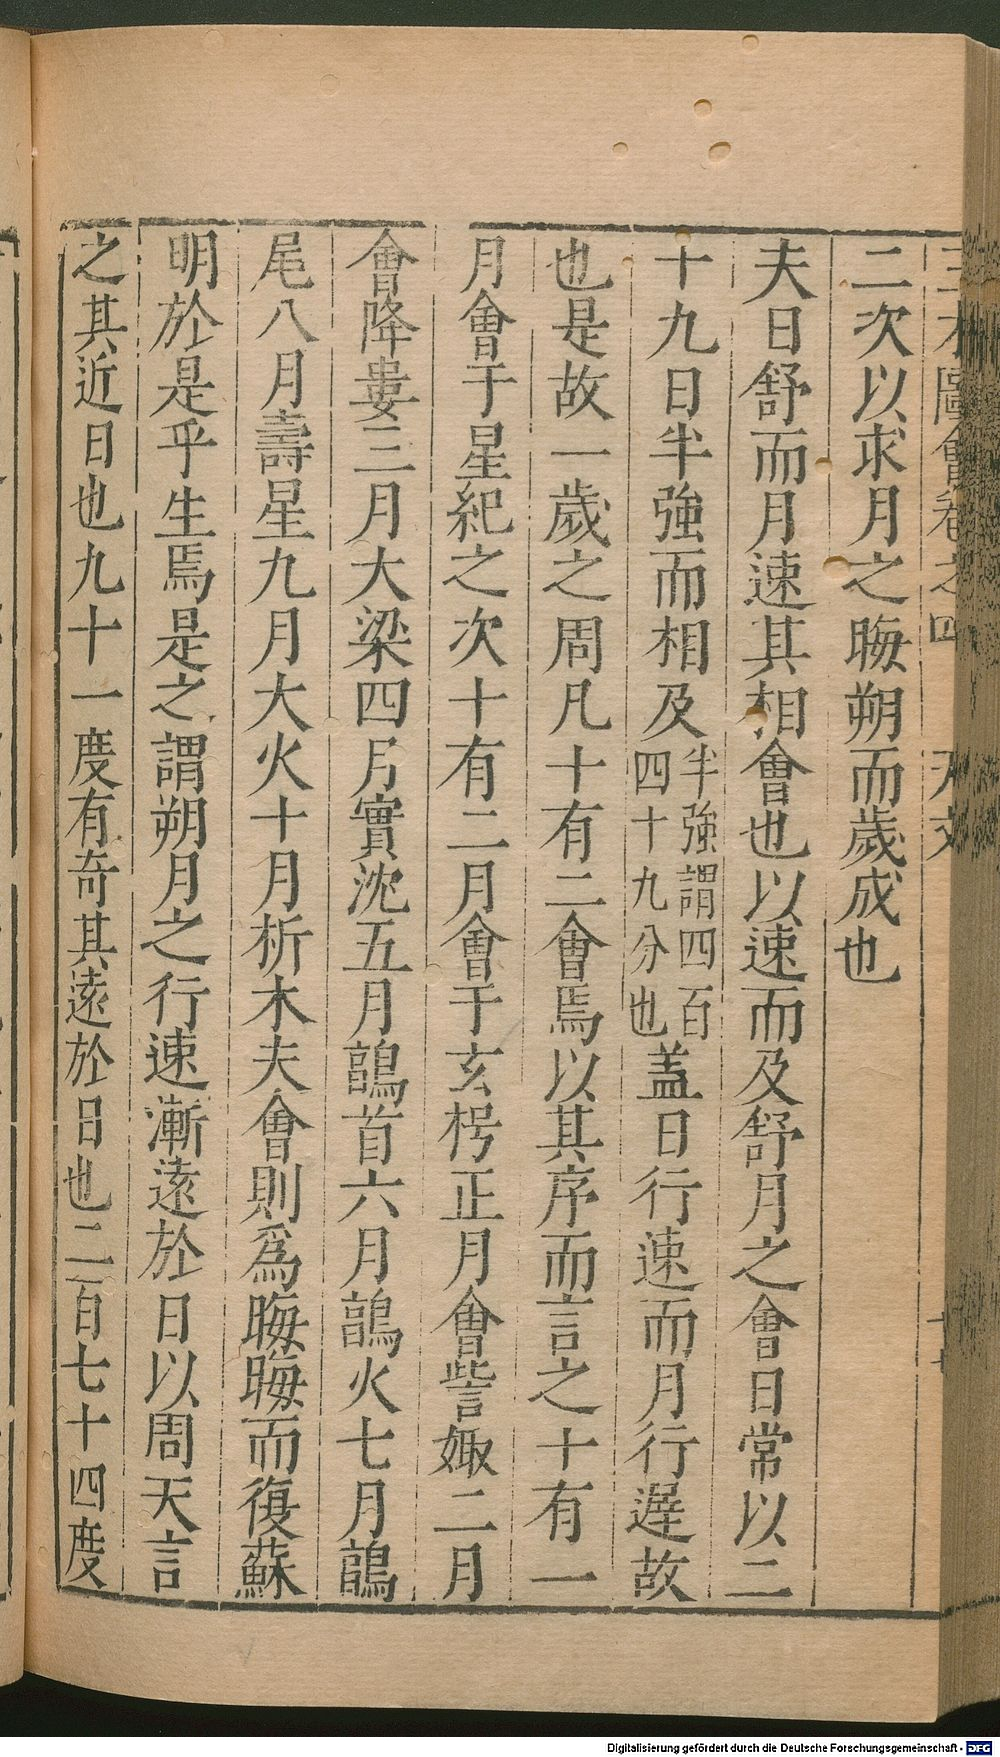 三才圖會卷之四 天文
二次以求月之晦朔而歲成也
夫日舒而月速其相會也以速而及舒月之會日常以二
十九日半強而相及半強謂四百四十九分也盖日行速而月行遲故
也是故一歲之周凡十有二會焉以其序而言之十有一
月會于星紀之次十有二月會于玄枵正月會訾娵二月
會降婁三月大梁四月實沈五月鶉首六月鶉火七月鶉
尾八月壽星九月大火十月析木夫會則爲晦晦而復蘇
明於是乎生焉是之謂朔月之行速漸遠於日以周天言
之其近日也九十一度有奇其遠於日也二百七十四度
Digitalisierung gefördert durch die Deutsche Forschungsgemeinschaft - DFG